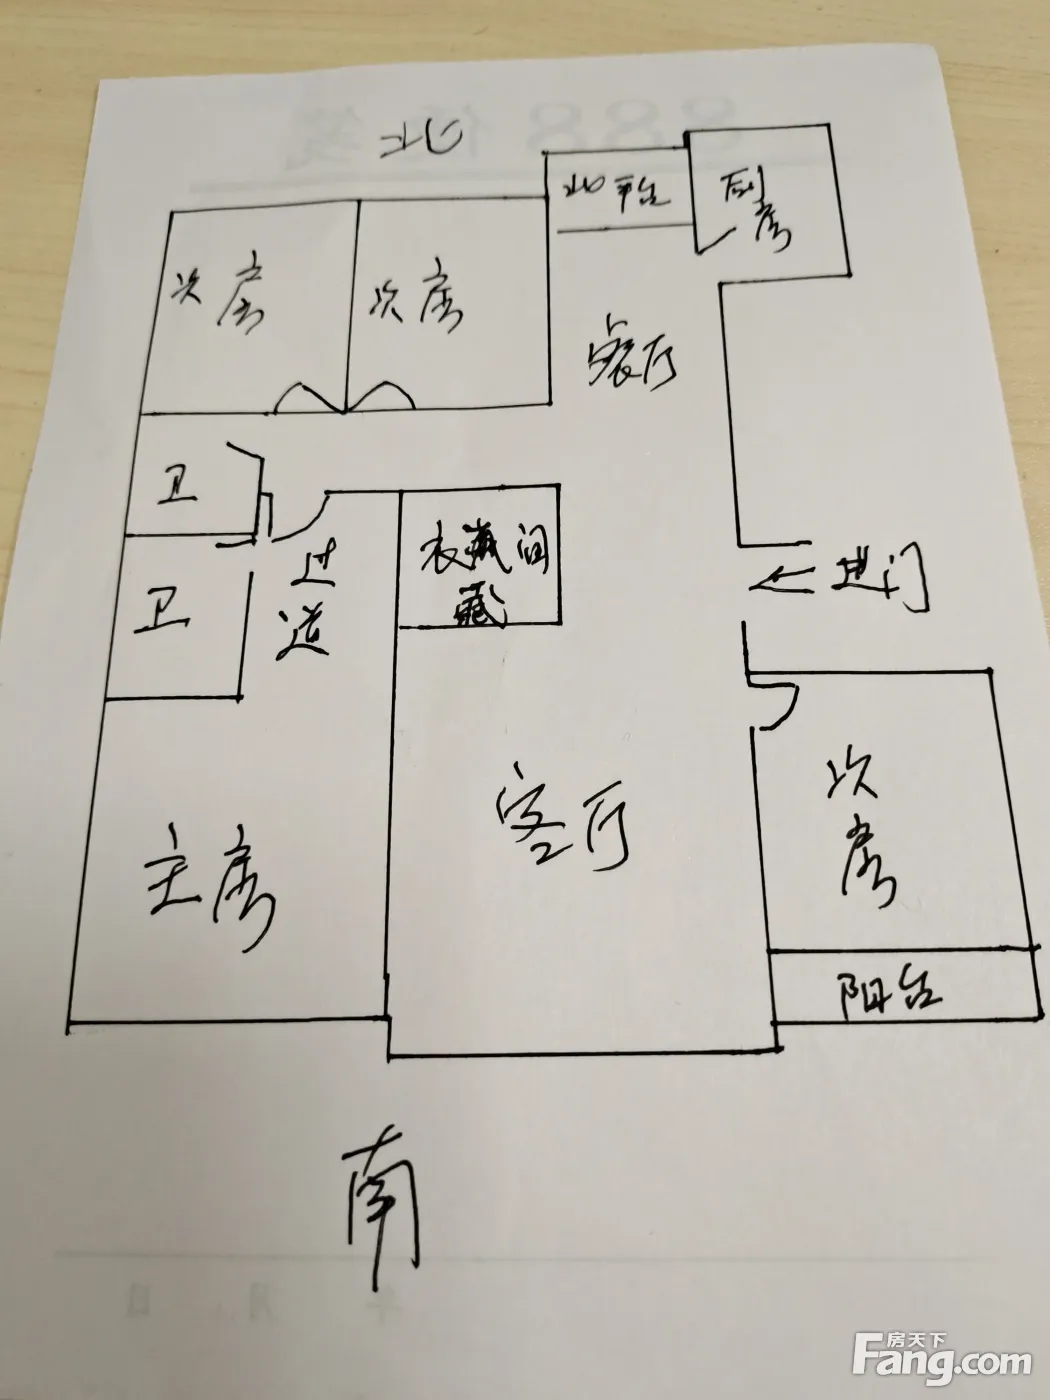 北
北平台
厨房
次房
次房
餐厅
卫
衣藏间
藏
进门
过道
卫
次房
客厅
主房
阳台
南
房天下
Fang.com